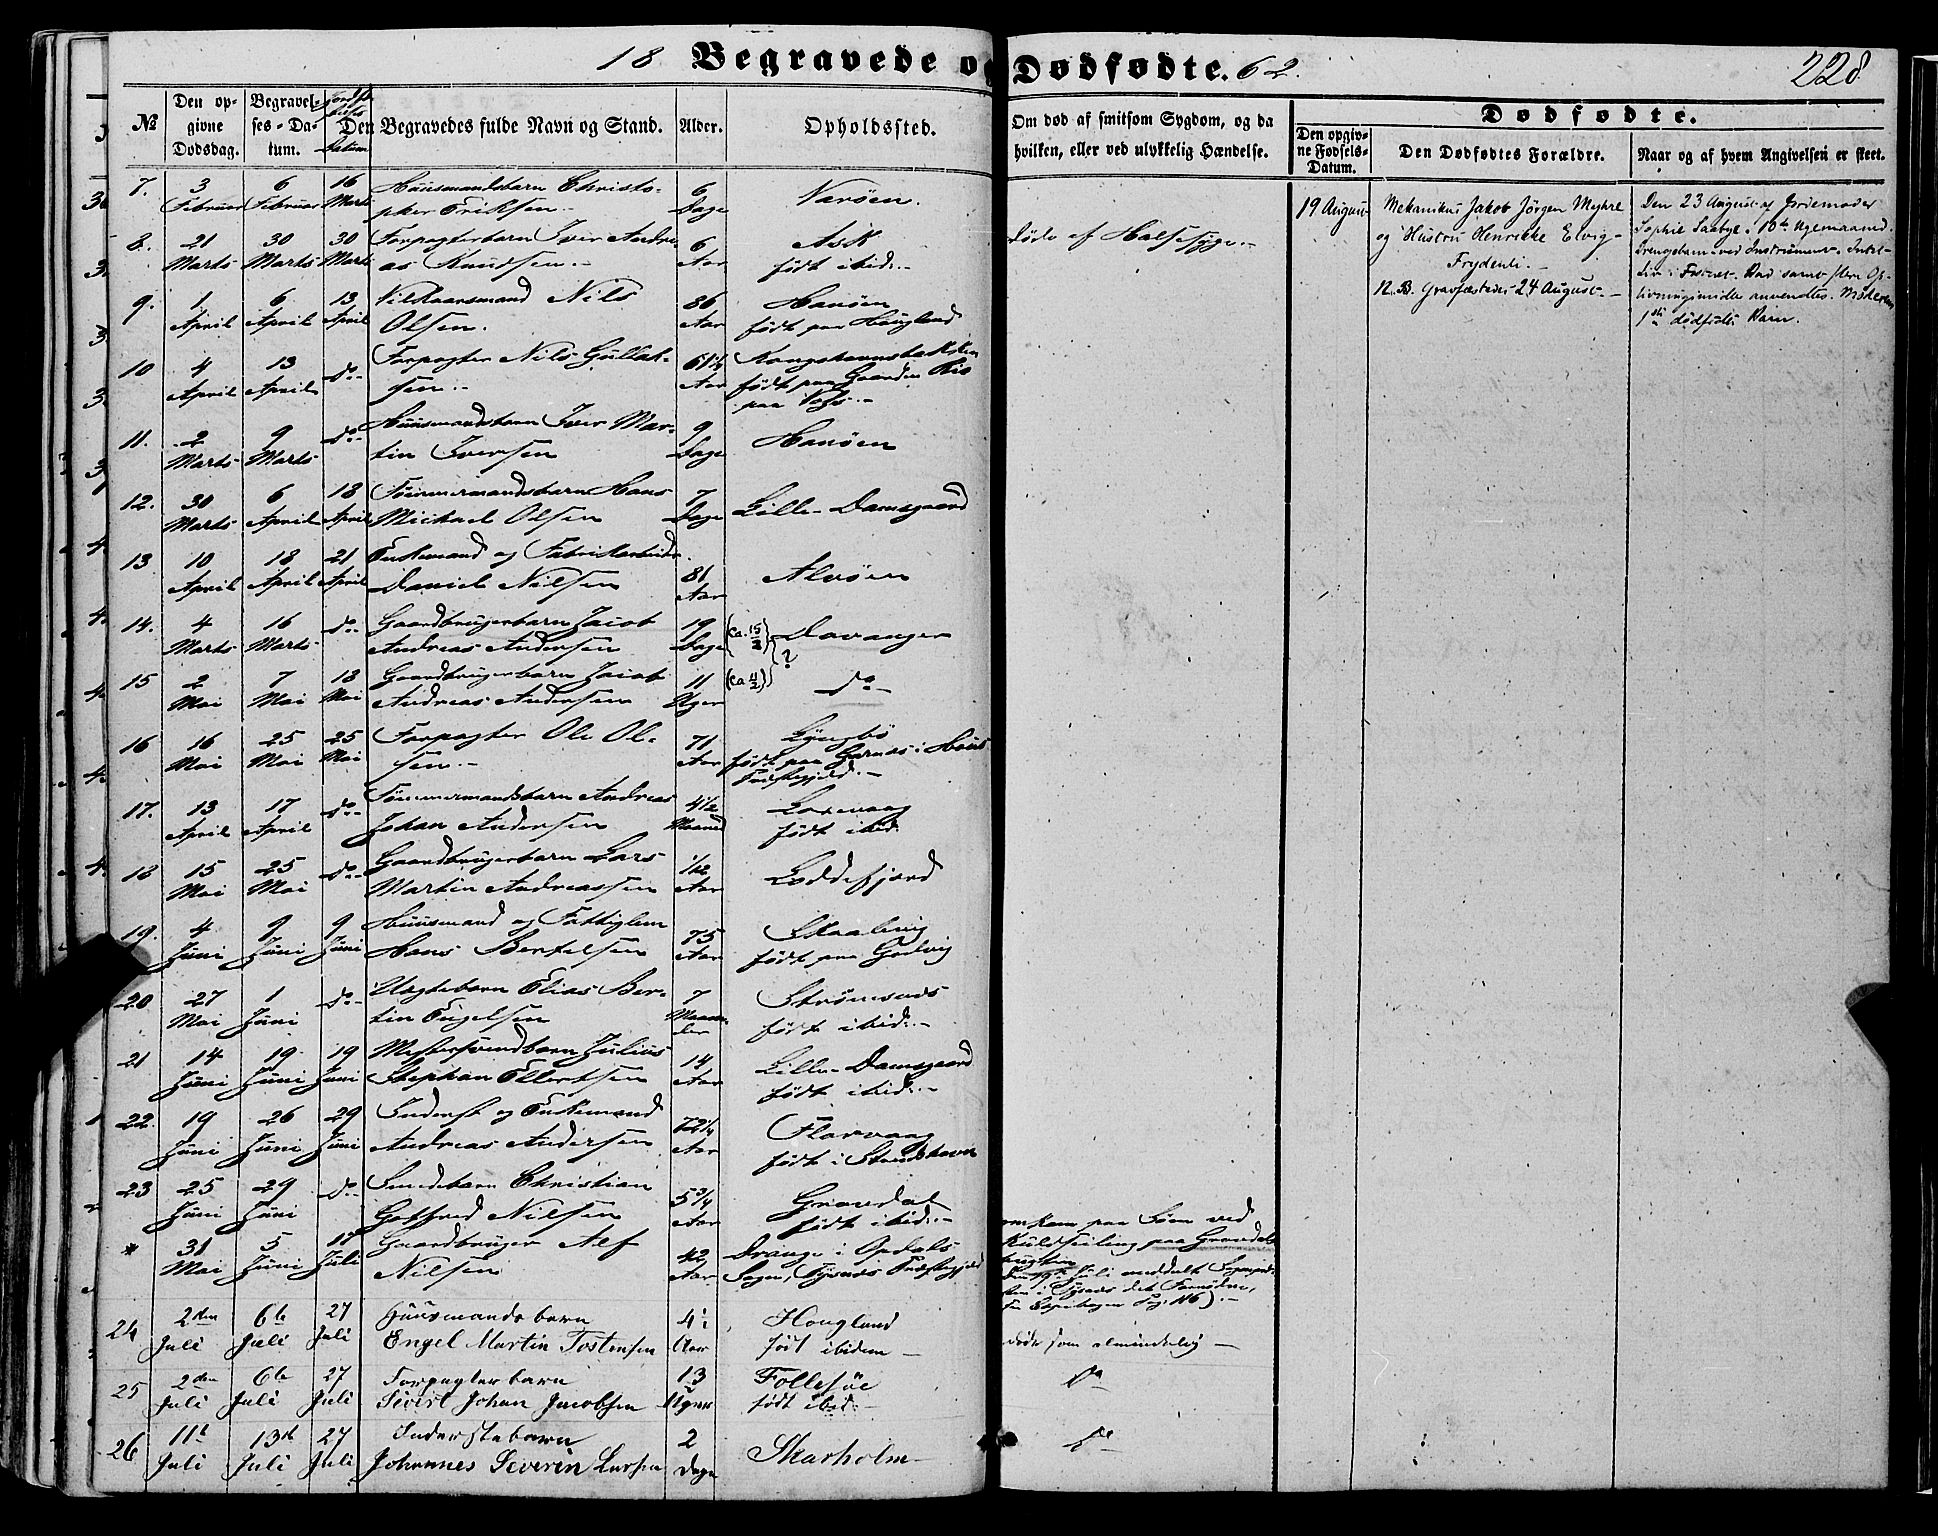 18 Begravede og Dødfødte. 62.
228
№
Den op-
givne
Dødsdag.
Begravel-
ses-Da-
tum.
Jordfæ-
stelses
Datum
Den Begravedes fulde Navn og Stand.
Alder.
Opholdssted.
Om død af smitsom Sygdom, og da
hvilken, eller ved ulykkelig Hændelse.
Dødfødte.
Den opgiv-
ne Fødsels-
Datum.
Den Dødfødtes Forældre.
Naar og af hvem Angivelsen er skeet.
7. 3 Februar 6 Februar 16 Marts Huusmandsbarn Christo-
pher Eriksen.- 6 Dage
8. 21 Marts 30 Marts 30 Marts Forpagterbarn Iver Andre-
as Knudsen.- 6 Aar Ask
født ibid:- døde af Halsesyge.-
9. 1 April 6 April 13 April Vilkaarsmand Nils
Olsen. 86 Aar Hanøen
født paa Hougland
10 4 April 13 April do- Forpagter Nils Gullak-
sen.- 61¼ Aar
født paa Gaarden
paa Voss.-
11. 2 Marts 9 Marts do- Huusmandsbarn Iver Mar-
tin Iversen 9 Dage Hanøen
12. 30 Marts 6 April 18 April Tömmermandsbarn Hans
Michael Olsen 7 Dage Lille-Damsgaard
13 10 April 18 April 21 April Enkemand og Fabrikarbeider
Daniel Nilsen 81 Aar Alvøen
14. 4 Marts 16 Marts do- Gaardbrugerbarn Jacob
Andreas Andersen 19 Dage (ca. 15/2) Davanger
?
15 2 Mai 7 Mai 18 Mai Gaardbrugerbarn Jacob
Andreas Andersen 11 Uger (ca ) do-
16 16 Mai 25 Mai 25 Mai Forpagter Ole Ol-
sen.- 71 Aar Lyngbö
født paa Garnæs i Hous
Præstegjeld.-
17. 13 April 17 April do- Tömmermandsbarn Andreas
Johan Andersen 4½ Maaned
født ibid.
18 15 Mai 25 Mai do- Gaardbrugerbarn Lars
Martin Andreassen ½ Aar Loddefjord
19. 4 Juni 9 Juni 9 Juni Huusmand og Fattiglem
Hans Bertelsen 75 Aar Skaalevig
født paa Godvig
20 27 Mai 1 Juni do- Uægtebarn Elias Ber-
tin Engelsen 7 Maane-
der Strømsnæs
født ibid:-
21 14 Juni 19 Juni 19 Juni Mestersvendbarn Julius
Stephan Ellertsen 14 Aar Lille-Damsgaard
født ibid:-
22. 19 Juni 26 Juni 29 Juni Inderst og Enkemand
Andreas Andersen 72¼ Aar Florvaag
født i Strudshavn
23 25 Juni 29 Juni do- Smedebarn Christian
Gotfred Nilsen 5¾ Aar Gravdal
født ibid:-
* 31 Mai 5 Juni 17 Juli Gaardbruger Alf
Nilsen 42 Aar Drange i Opdals
Sogn, Tysnæs Præstegjeld
omkom paa Søen ved
Kuldseiling paa Gravdals
bugten
(den 19de Juli meddelt Sognepræ-
sten i Tysnæs det Fornødne,
se Copiebogen Pag: 116).-
24 2den Juli 6te Juli 27 Juli Huusmandsbarn
Engel Martin Tostensen Aar Hougland
født ibidem - døde som almindelig -
25 2den Juli 6te Juli 27 Juli Forpagterbarn
Sivert Johan Jacobsen 13 Uger Follesøe
født ibid:- do
26 11te Juli 13de Juli 27 Juli Inderstebarn
Johannes Severin Larsen 2 Dage Skarholm- do
19 August
Mekanikus Jakob Jörgen Myhre
og Hustru Henrikke Elvig-
Frydenli.-
N.B. Gravfæstedes 24 August.-
Den 23 August af Jordemoder
Sophie Saabye i 10de Ugemaaned.
Drengebarn ved Instrument. Intet
Liv i Fostret. Bad samt flere Op-
livningsmidler anvendtes. Moderens
1ste dødfødte Barn.